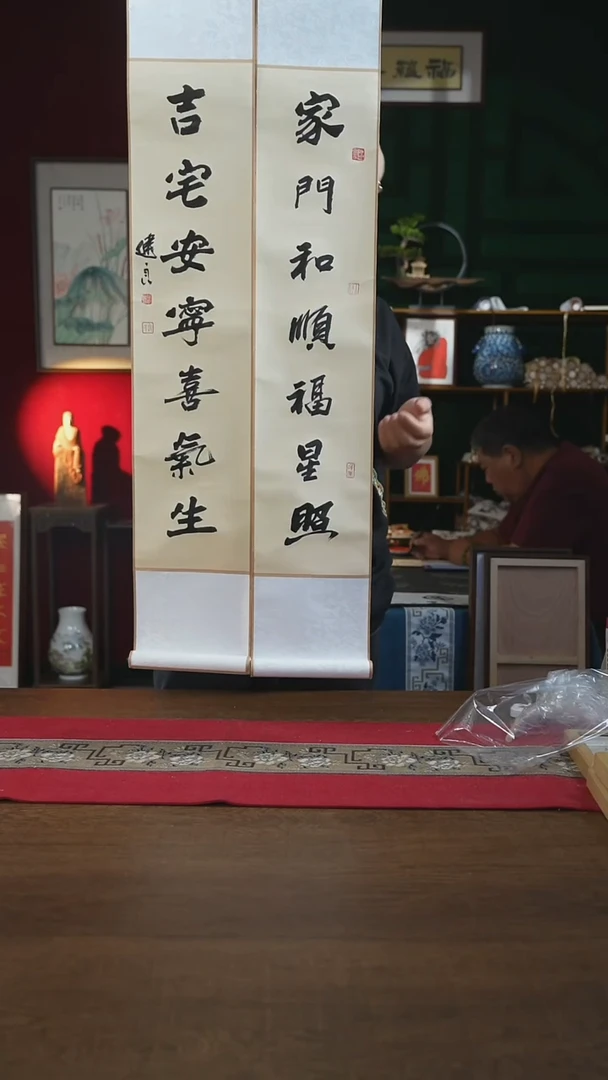 家門和順福星照
吉宅安寧喜氣生
建良
福蘊